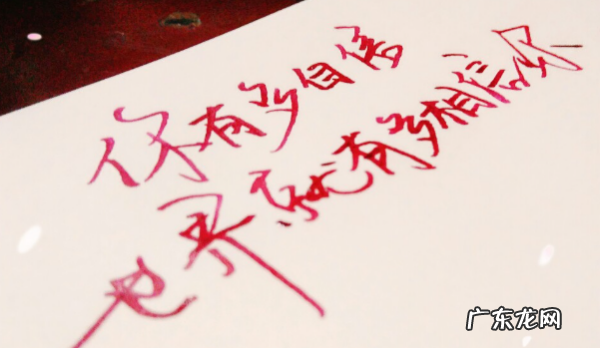 你有多自信
世界就有多相信你
广东龙网